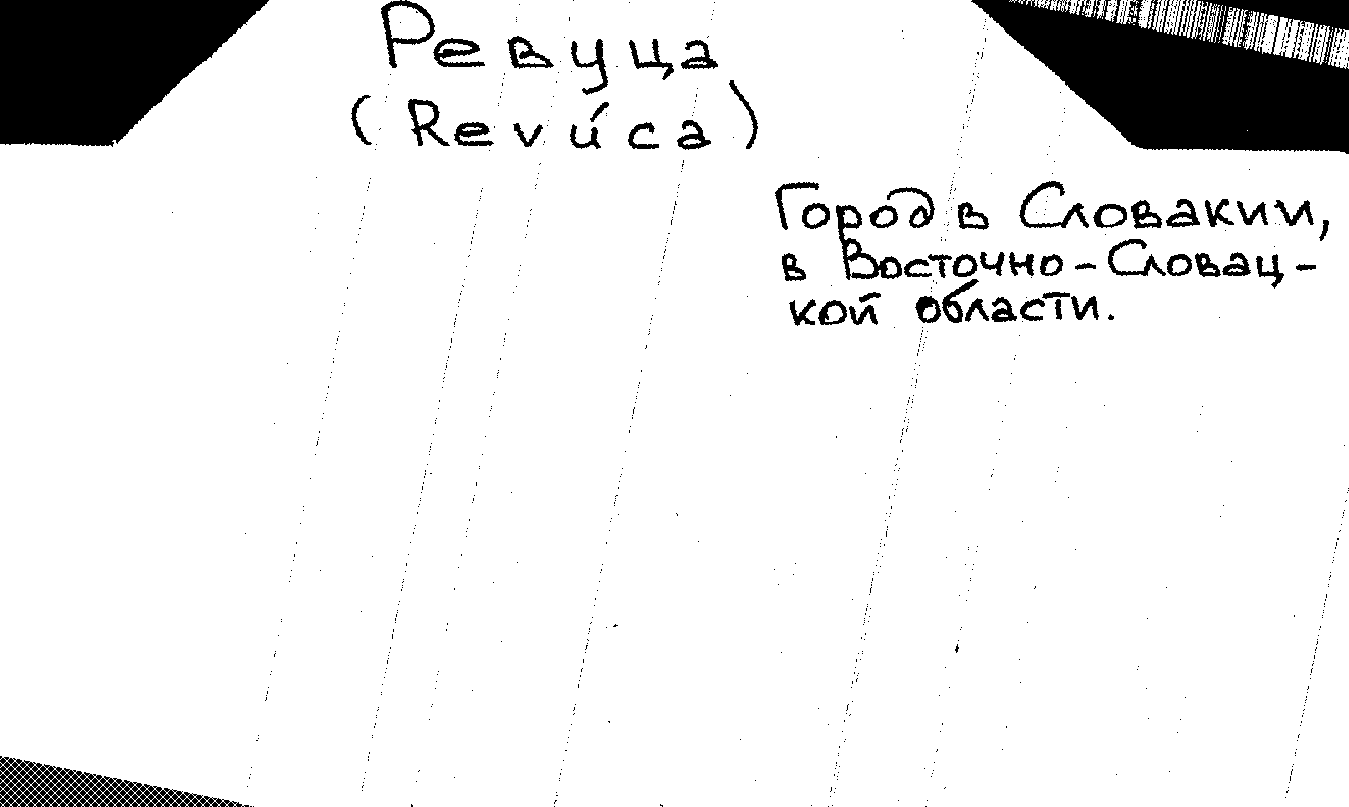 Ревуца
(Revúca)
Город в Словакии,
в Восточно-Словац-
кой области.